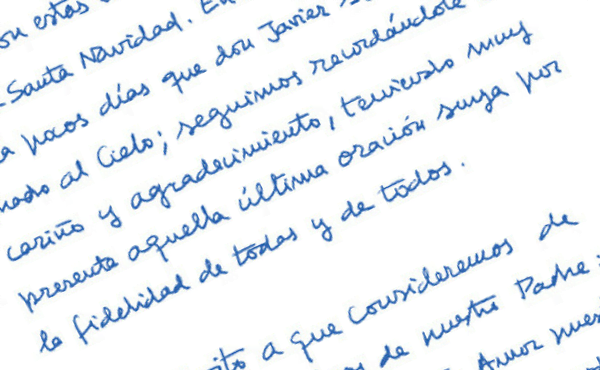 on estas
Santa Navidad. En
pocos días que don Javier
al Cielo; seguimos recordándole
cariño y agradecimiento, teniendo muy
presente aquella última oración suya por
la fidelidad de todas y de todos.
a que consideremos de
de nuestro Padre:
Amor